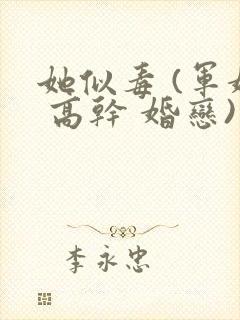 她似毒(軍
高幹 婚戀)
李永忠